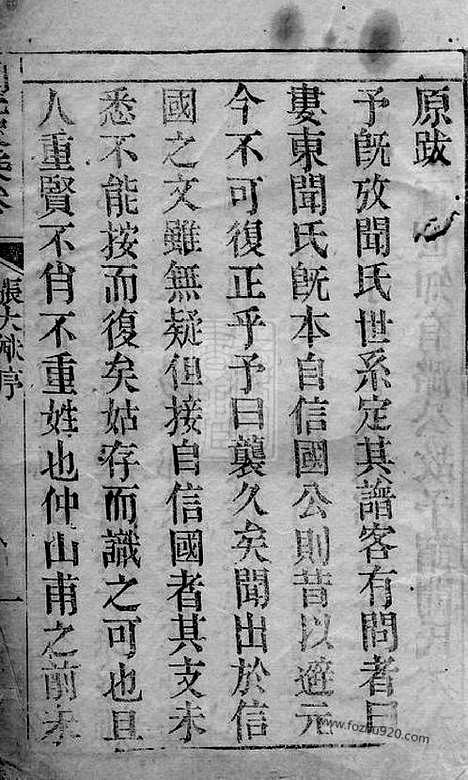 原跋
予旣攷聞氏世系定其譜客有問者曰
婁東聞氏旣本自信國公則昔以避元
今不可復正乎予曰襲久矣聞出於信
國之文雖無疑但接自信國者其支未
悉不能按而復矣姑存而識之可也且
人重賢不肖不重姓也仲山甫之前未
張大猷序
一
www.fozhu920.com